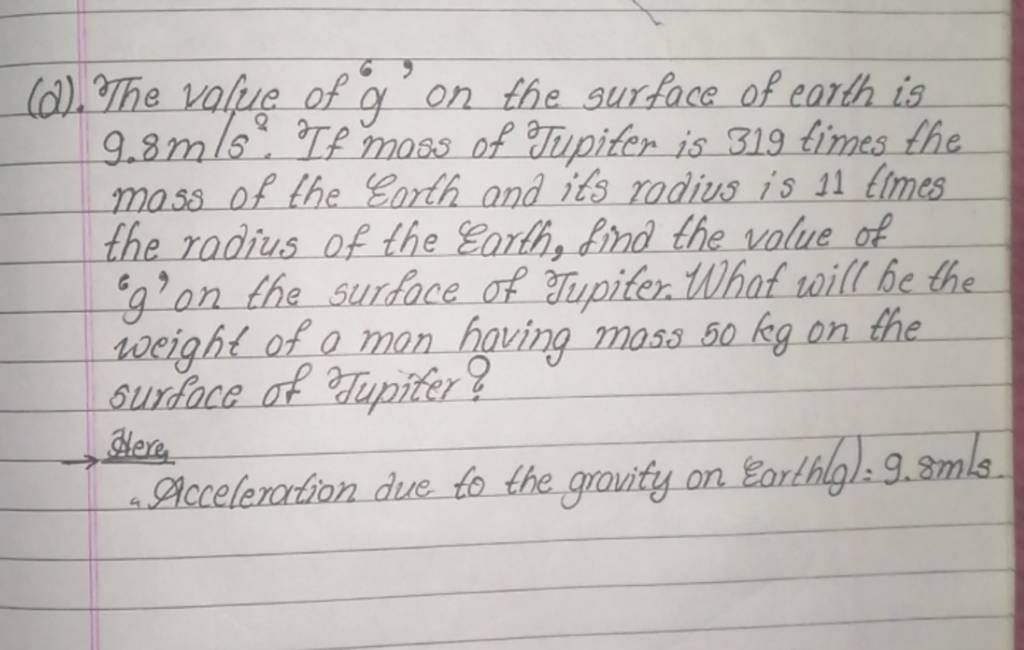 (d). The value of 'g' on the surface of earth is
9.8m/s². If mass of Jupiter is 319 times the
mass of the Earth and its radius is 11 times
the radius of the Earth, find the value of
'g' on the surface of Jupiter. What will be the
weight of a man having mass 50 kg on the
surface of Jupiter?
→ Here,
Acceleration due to the gravity on Earth(g) = 9.8m/s.